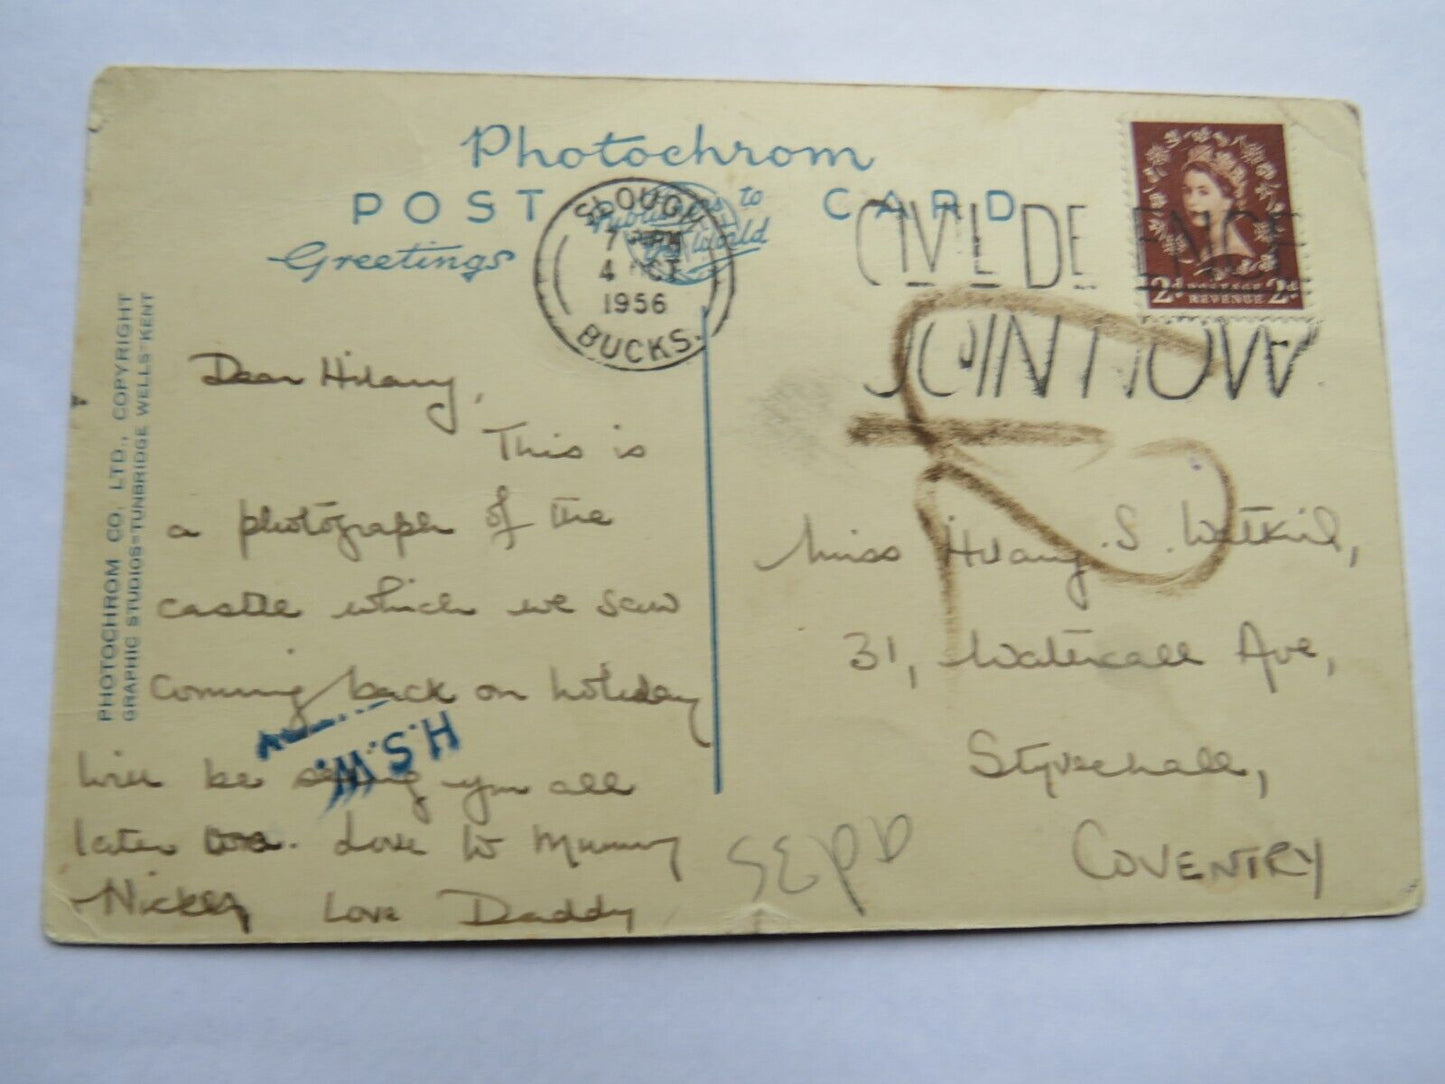 Photochrom
POST CARD
Greetings
Publications to
the World
SLOUGH
7 PM
4 OCT
1956
BUCKS.
CIVIL DEFENCE
JOIN NOW
2d POSTAGE 2d
REVENUE
PHOTOCHROM CO. LTD., COPYRIGHT
GRAPHIC STUDIOS-TUNBRIDGE WELLS-KENT
Dear Hilary,
This is
a photograph of the
castle which we saw
coming back on holiday
will be seeing you all
later. Love to Mummy
Nickey Love Daddy
H.S.W.
Miss Hilary. S.
31, Watercall Ave,
Styvechall,
COVENTRY